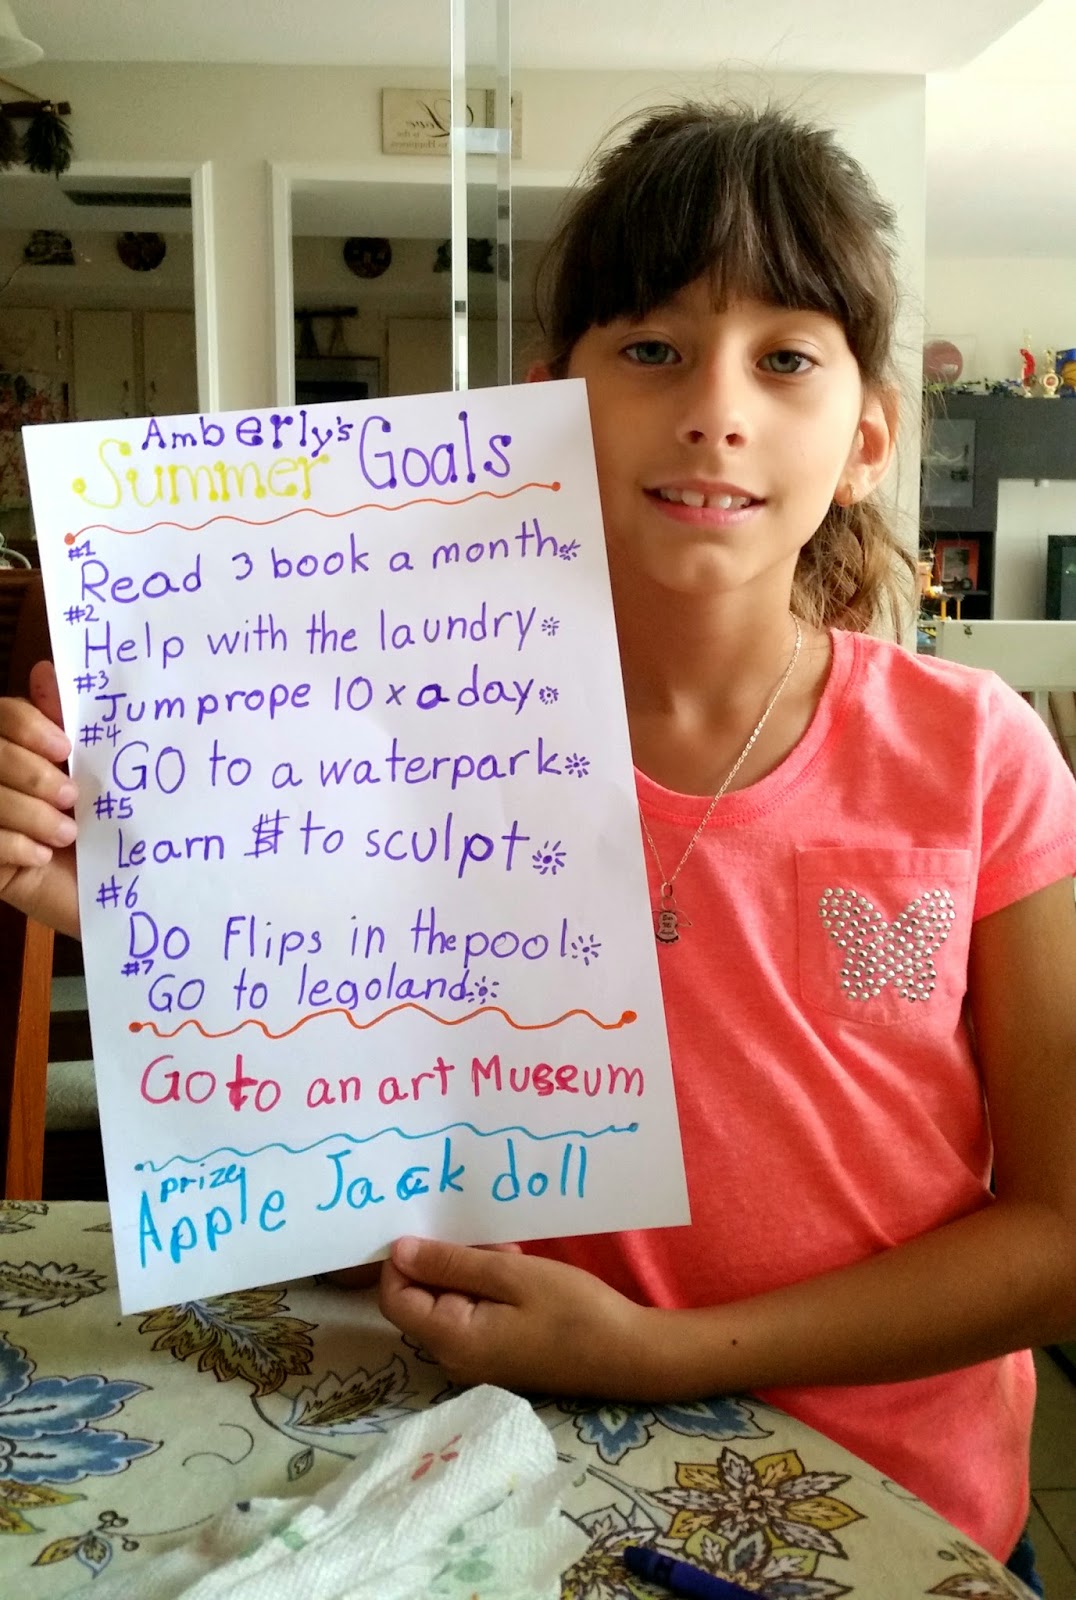 Amberly's
Summer Goals
#1
Read 3 book a month
#2
Help with the laundry
#3
Jump rope 10 x a day
#4
GO to a waterpark
#5
Learn to sculpt
#6
Do Flips in the pool
#7
GO to legoland
Go to an art Museum
prize
Apple Jack doll